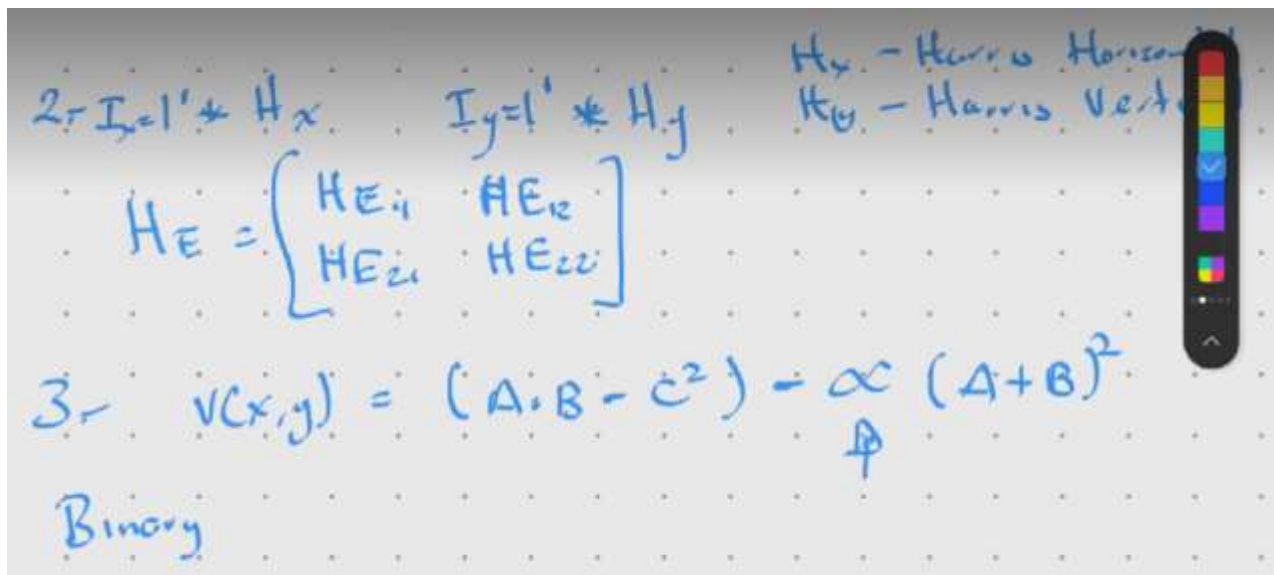 Hx - Harris
Hy - Harris
2.- Ix=I' * Hx Iy=I' * Hy
HE = [HE11 HE12
HE21 HE22]
3.- V(x,y) = (A·B - C²) - α (A+B)²
Binary